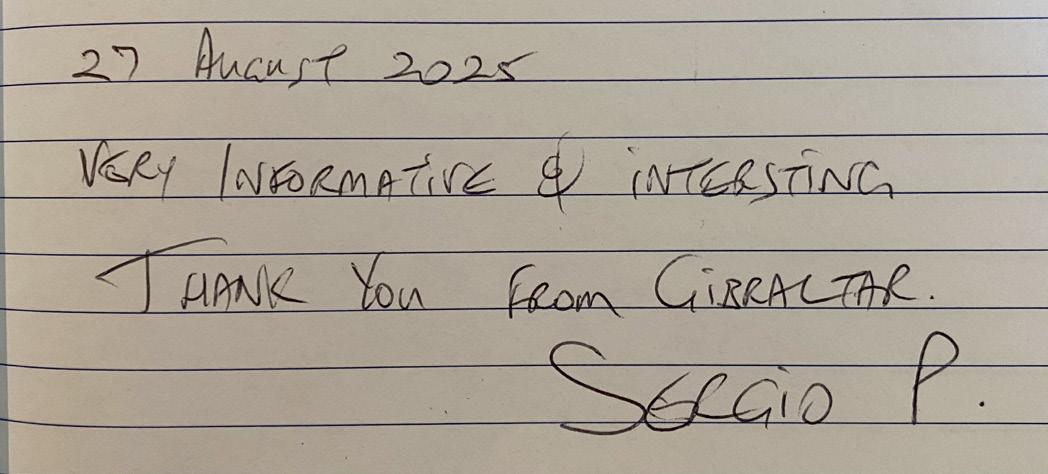 27 August 2025
VERY INFORMATIVE & INTERSTING
THANK YOU FROM GIBRALTAR.
SERGIO P.